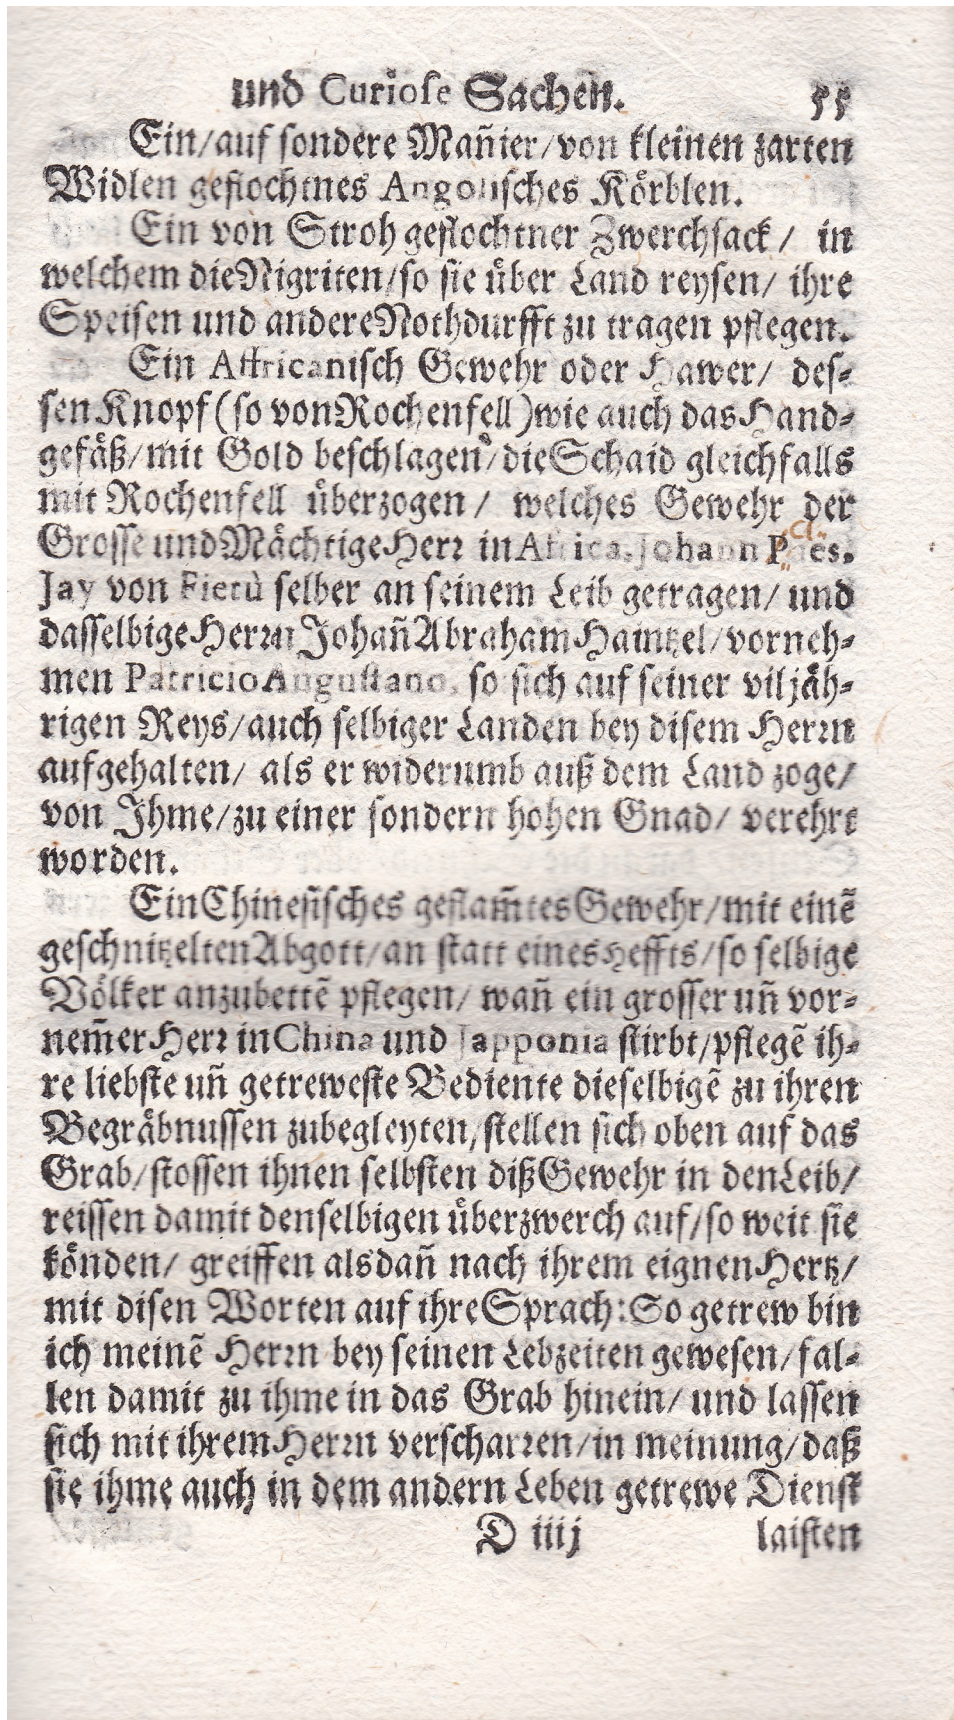 und Curiose Sachen. 55
Ein/auf sondere Mañier/von kleinen zarten
Widlen geflochtnes Angolisches Körblen.
Ein von Stroh geflochtner Zwerchsack/ in
welchem die Nigriten/so sie über Land reysen/ ihre
Speisen und andere Nothdurfft zu tragen pflegen.
Ein Affricanisch Gewehr oder Hawer/ des-
sen Knopf (so von Rochenfell) wie auch das Hand-
gefäß/mit Gold beschlagen/die Schaid gleichfalls
mit Rochenfell überzogen/ welches Gewehr der
Grosse und Mächtige Herr in Africa, Johann
Jay von Fietù selber an seinem Leib getragen/ und
dasselbige Herrn Johañ Abraham Haintzel/vorneh-
men Patricio Augustano, so sich auf seiner viljäh-
rigen Reys/auch selbiger Landen bey disem Herrn
aufgehalten/ als er widerumb auß dem Land zoge/
von Ihme/zu einer sondern hohen Gnad/ verehrt
worden.
Ein Chinesisches geflam̃tes Gewehr/mit einẽ
geschnitzelten Abgott/an statt eines Heffts/so selbige
Völker anzubettẽ pflegen/ wañ ein grosser uñ vor-
nem̃er Herr in China und Japponia stirbt/pflegẽ ih-
re liebste uñ getreweste Bediente dieselbigẽ zu ihren
Begräbnussen zubegleyten/stellen sich oben auf das
Grab/stossen ihnen selbsten diß Gewehr in den Leib/
reissen damit denselbigen überzwerch auf/so weit sie
könden/ greiffen alsdañ nach ihrem eignen Hertz/
mit disen Worten auf ihre Sprach: So getrew bin
ich meinẽ Herrn bey seinen Lebzeiten gewesen/fal-
len damit zu ihme in das Grab hinein/ und lassen
sich mit ihrem Herrn verscharren/in meinung/daß
sie ihme auch in dem andern Leben getrewe Dienst
D iiij laisten